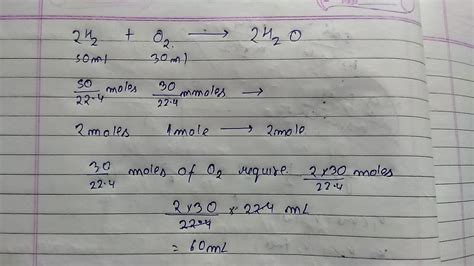 2H₂ + O₂ ⟶ 2H₂O
50ml 30ml
50/22.4 moles 30/22.4 mmoles ⟶
2 moles 1 mole ⟶ 2 mole
30/22.4 moles of O₂ require 2×30/22.4 moles
2×30/22.4 × 22.4 mL
= 60mL